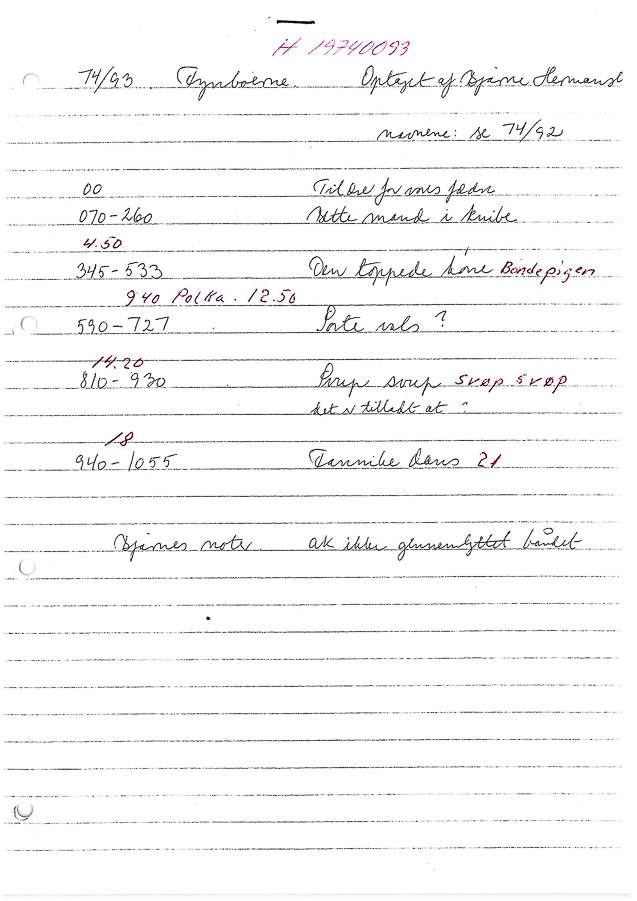 H 19740093
74/93 Fynboerne. Optaget af Bjarne Hermansen
navnene: se 74/92
00 Til Ore for mes fædre
070-260 Bette mand i knibe
4.50
345-533 Den toppede höne Bondepigen
940 Polka. 12.50
590-727 Sorte vals ?
14.20
810-930 Svup svup SVØP SVØP
det er tilladt at ?
18
940-1055 Fannike Dans 21
Bjarnes noter ak ikke gennemlyttet båndet